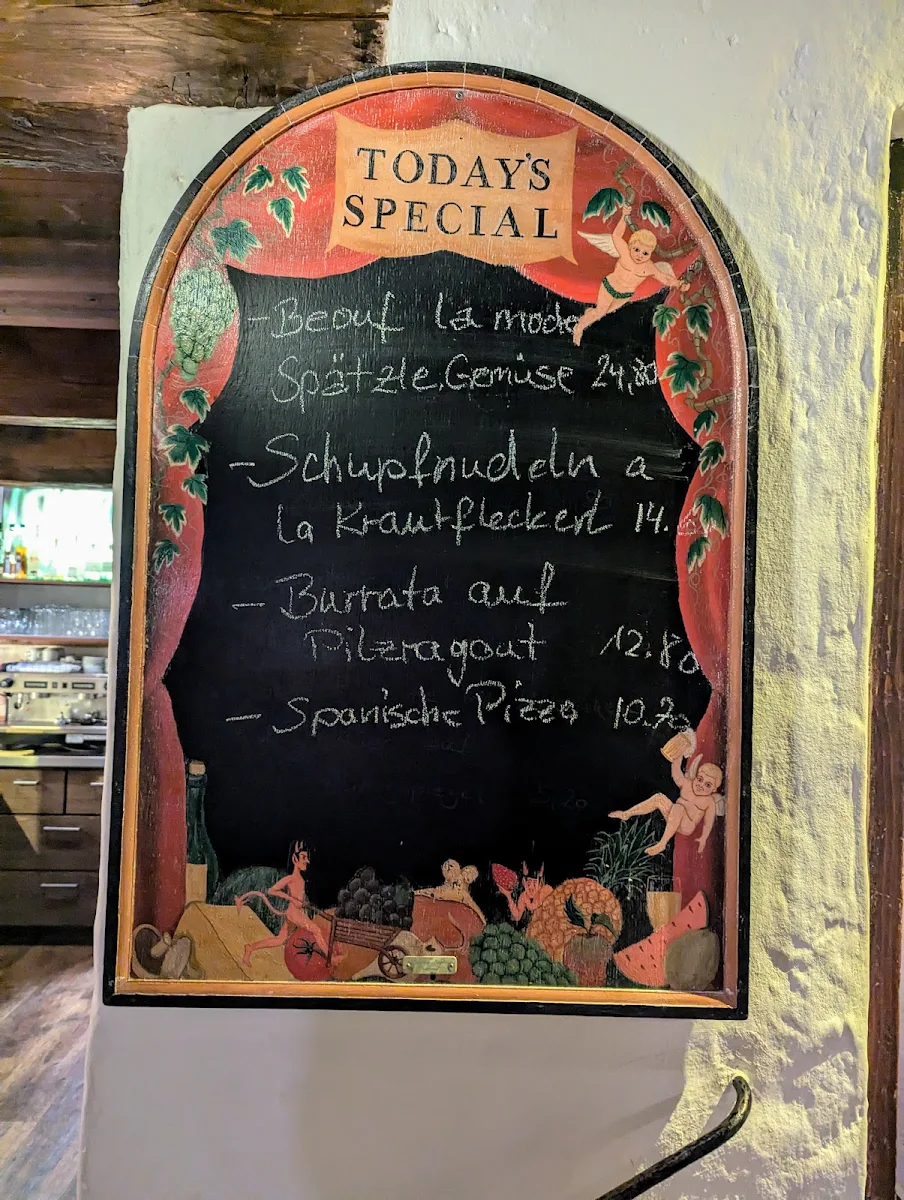 TODAY'S
SPECIAL
- Beouf la mode
Spätzle, Gemüse 24,80
- Schupfnudeln a
la Krautfleckerl 14.
- Burrata auf
Pilzragout 12.80
- Spanische Pizza 10.20